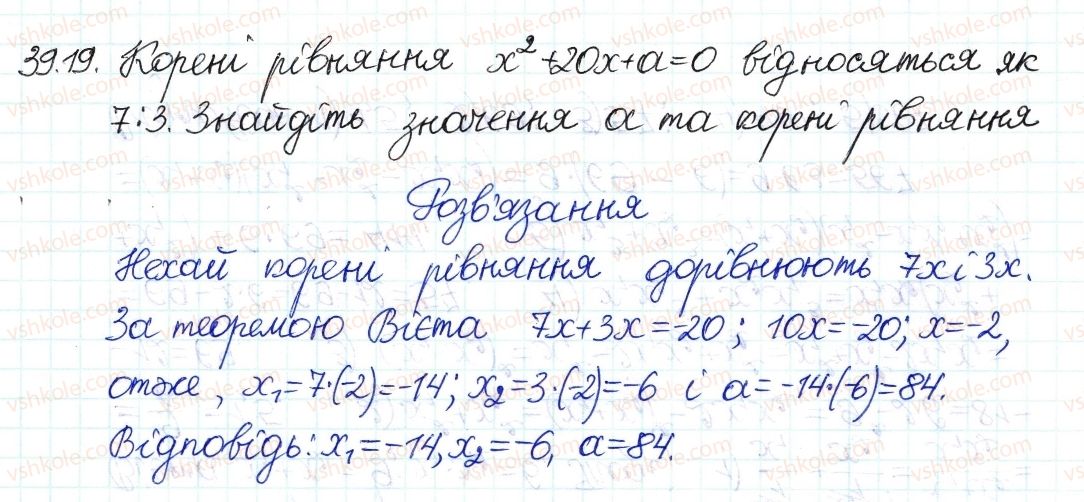 39.19. Корені рівняння x²+20x+a=0 відносяться як
7:3. Знайдіть значення a та корені рівняння
Розв'язання
Нехай корені рівняння дорівнюють 7x і 3x.
За теоремою Вієта 7x+3x=-20; 10x=-20; x=-2,
отже, x₁=7·(-2)=-14; x₂=3·(-2)=-6 і a=-14·(-6)=84.
Відповідь: x₁=-14, x₂=-6, a=84.